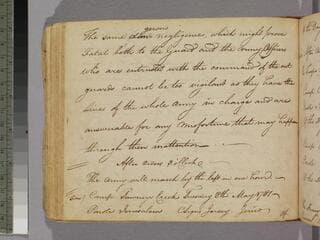 gross
The same negligence, which might prove
Fatal both to the Guard and the Army Officers
who are entrusted with the command of the out
guards cannot be too vigilant as they have the
lives of the whole Army in charge and are
answerable for any Misfortune that may happen
through their inattention
After orders
The Army will march by the left in one hour
Camp Creek Tuesday 8th May 1781
Parole Jerusalem C Sign Jersey